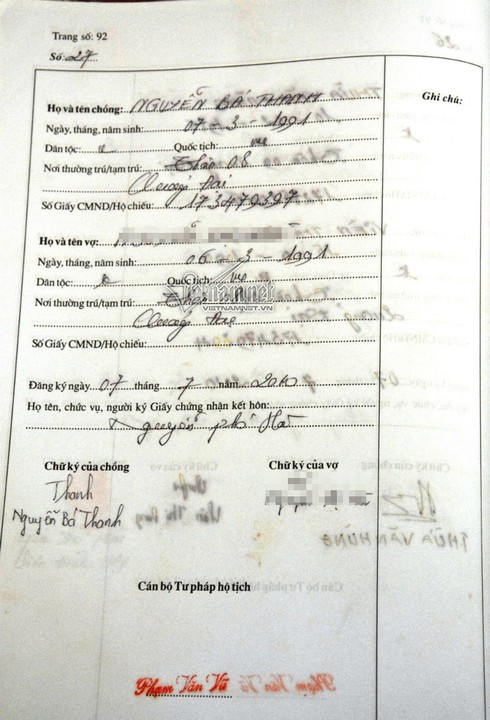 Trang số: 92
Số: 27
Ghi chú:
Họ và tên chồng: NGUYỄN BÁ THANH
Ngày, tháng, năm sinh: 07 - 3 - 1991
Dân tộc: Quốc tịch:
Nơi thường trú/tạm trú: Thôn 08
Số Giấy CMND/Hộ chiếu: 173479397
Họ và tên vợ:
Ngày, tháng, năm sinh: 06 - 3 - 1991
Dân tộc: Quốc tịch:
Vietnamnet
VIETNAMNET.VN
Nơi thường trú/tạm trú: Thôn
Số Giấy CMND/Hộ chiếu:
Đăng ký ngày 07 tháng 7 năm 2010
Họ tên, chức vụ, người ký Giấy chứng nhận kết hôn:
Nguyễn phi Hà
Chữ ký của chồng Chữ ký của vợ
Thanh
Nguyễn Bá Thanh
Cán bộ Tư pháp hộ tịch
Phạm Văn Vũ